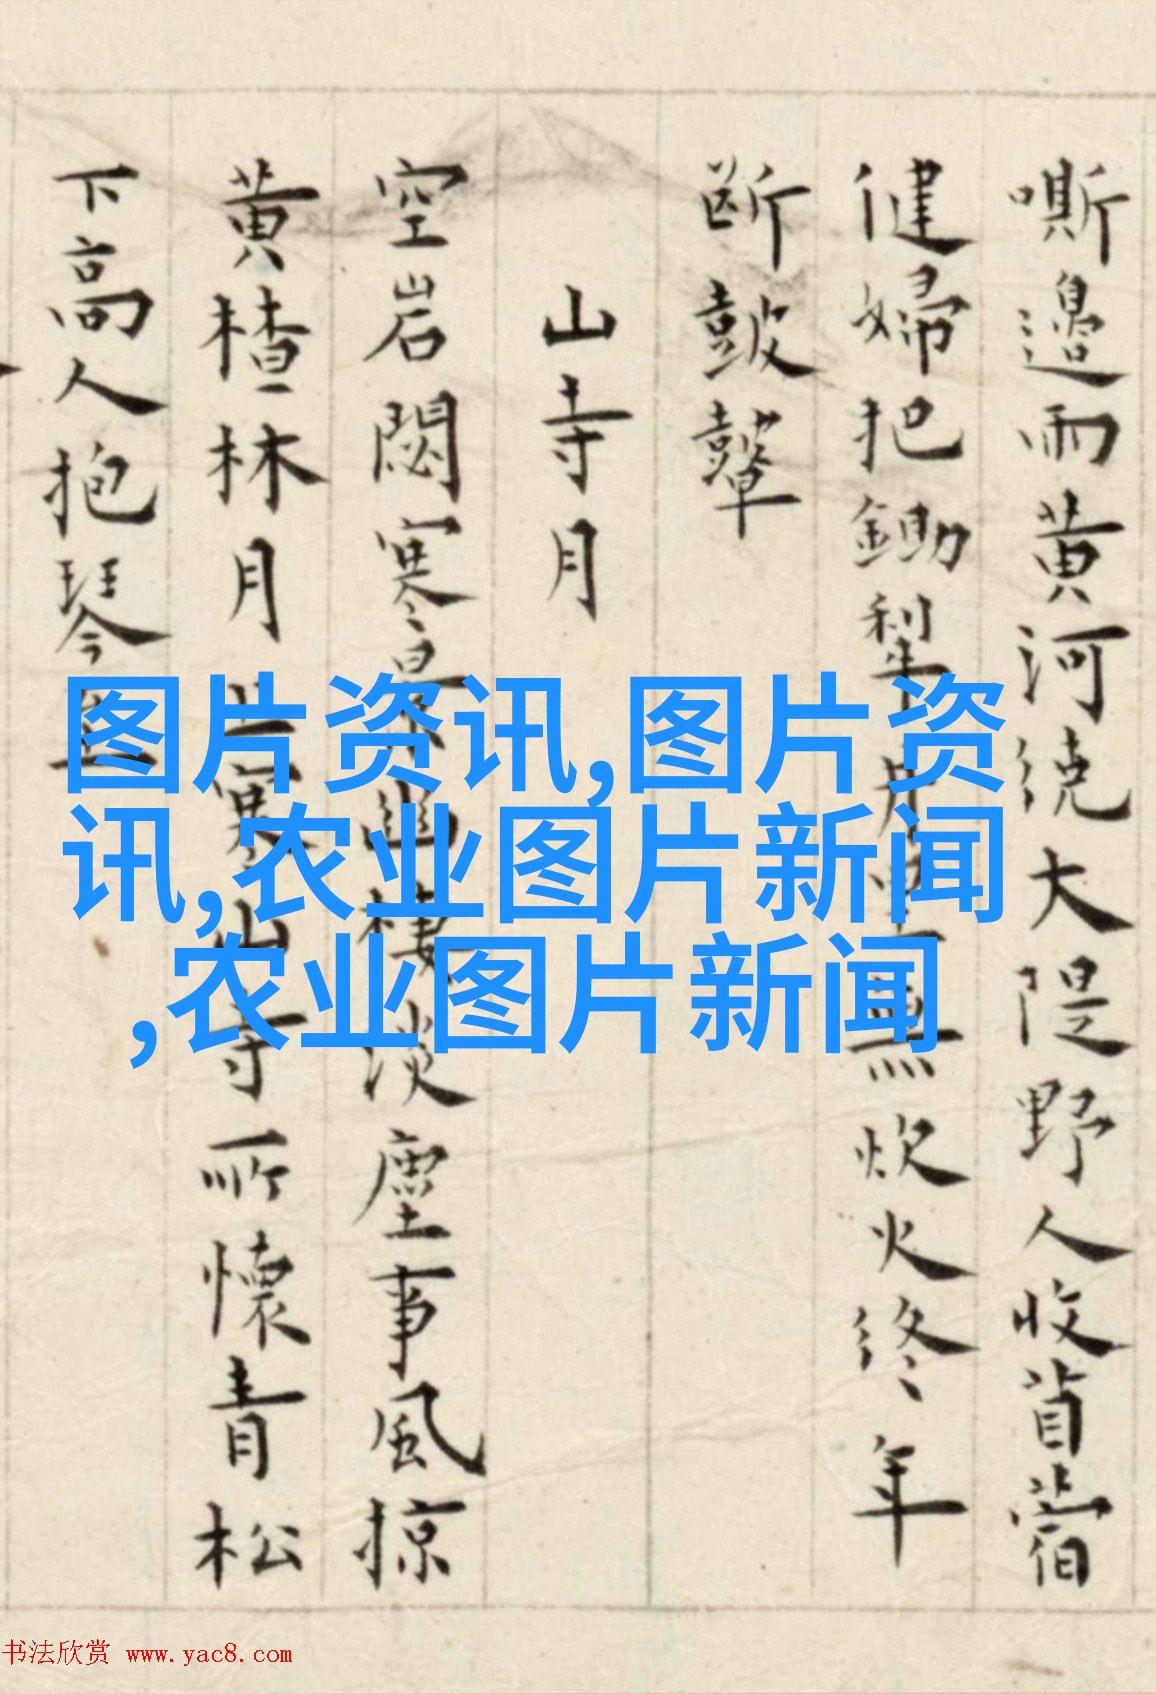 嘶邊雨黄河繞大隄野人收苜蓿
健婦把鋤犁無炊火終年
断鼓鼙
山寺月
空岩閟寒泉幽棲淡塵事風掠
黄楂林月出寒山寺所懷青松
下高人抱琴至
图片资讯,图片资
讯,农业图片新闻
,农业图片新闻
书法欣赏 www.yac8.com